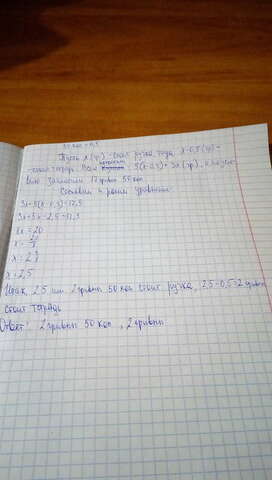 50 коп = 0,5
Пусть x (гр) - стоит ручка, тогда x-0,5 (гр) -
- стоит тетрадь. Всего : 5(x-0,5) + 3x (гр),
заплатили 17 гривн 50 коп.
Составим и решим уравнение:
3x+5(x-0,5)=17,5
3x+5x-2,5=17,5
8x=20
x=20/8
x=2
x=2,5
Итак, 2,5 или 2 гривны 50 коп стоит ручка, 2,5-0,5=2 гривны
стоит тетрадь
Ответ: 2 гривны 50 коп, 2 гривны